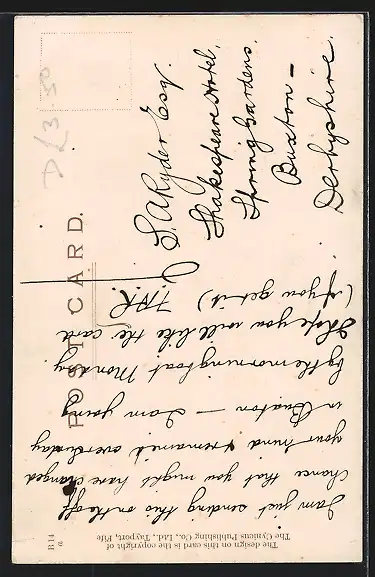 POST CARD.
D £3.50
S. A Ryder Esq.
Shakespeare Hotel,
Spring Gardens.
Buxton –
Derbyshire.
I am just sending this on the off
chance that you might have changed
your mind & remained over Sunday
in Buxton – I am going
by the morning boat Monday
Hope you will like the card
(if you get it)
The design on this card is the copyright of
The Cynicus Publishing Co., Ltd., Tayport, Fife
B 14